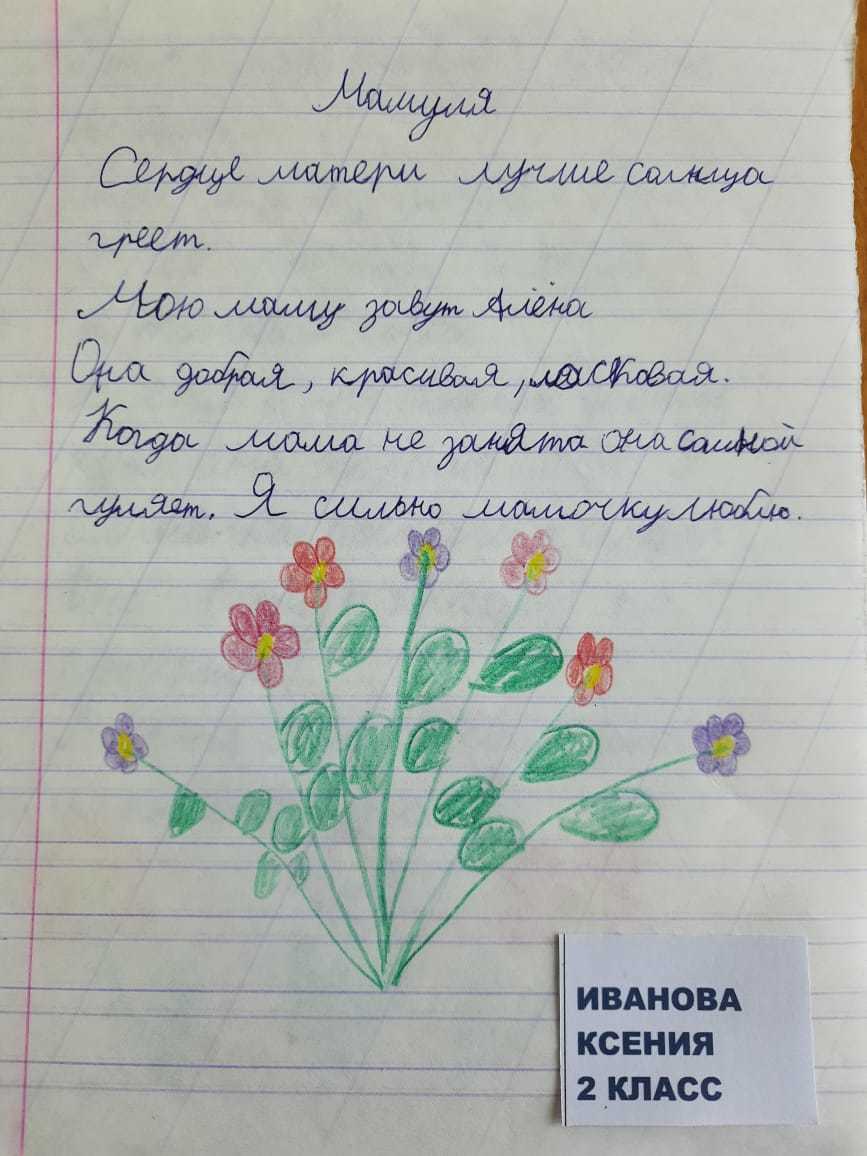 Мамуля
Сердце матери лучше солнца
греет.
Мою маму завут Алёна
Она добрая, красивая, ласковая.
Когда мама не занята она самной
гуляет. Я сильно мамочку люблю.
ИВАНОВА
КСЕНИЯ
2 КЛАСС